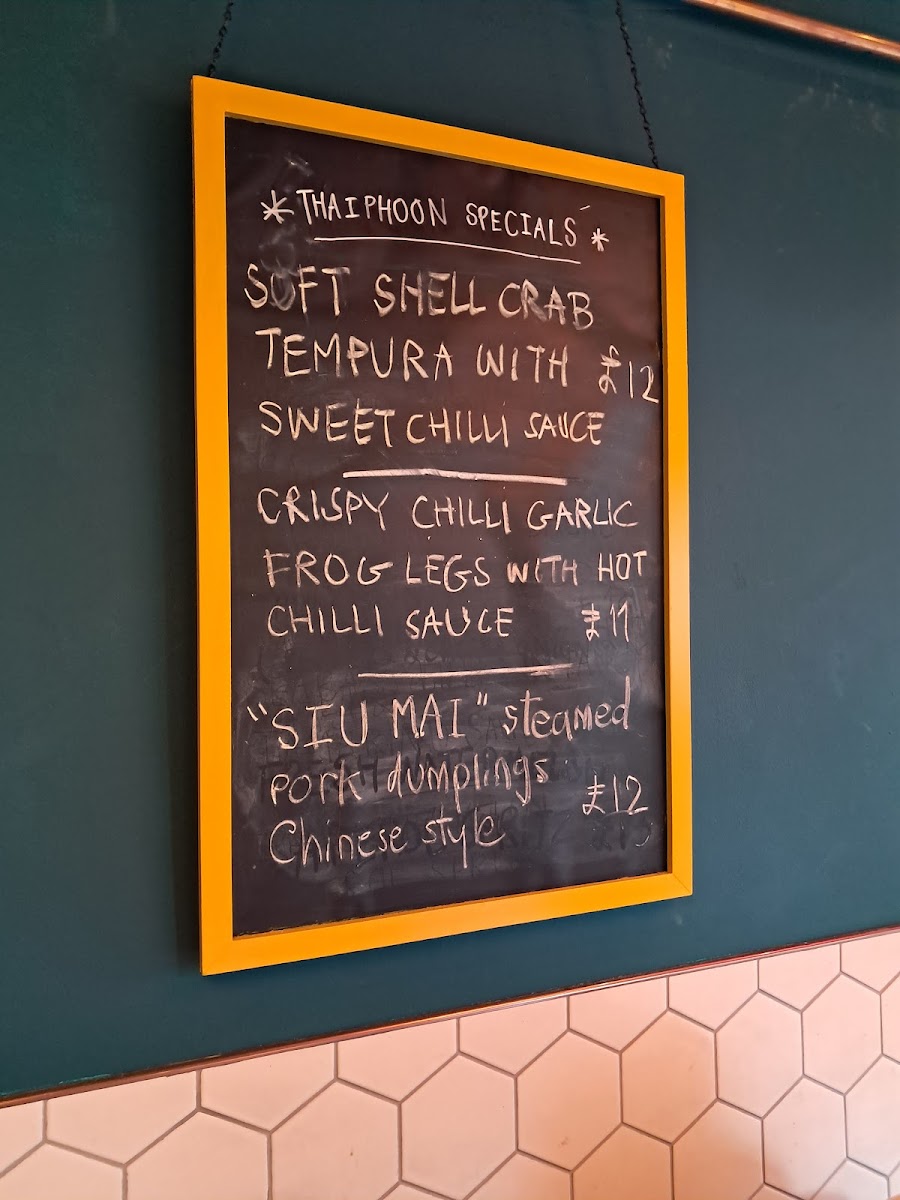 * THAIPHOON SPECIALS *
SOFT SHELL CRAB
TEMPURA WITH £12
SWEET CHILLI SAUCE
CRISPY CHILLI GARLIC
FROG LEGS WITH HOT
CHILLI SAUCE £11
"SIU MAI" steamed
pork dumplings
£12
Chinese style